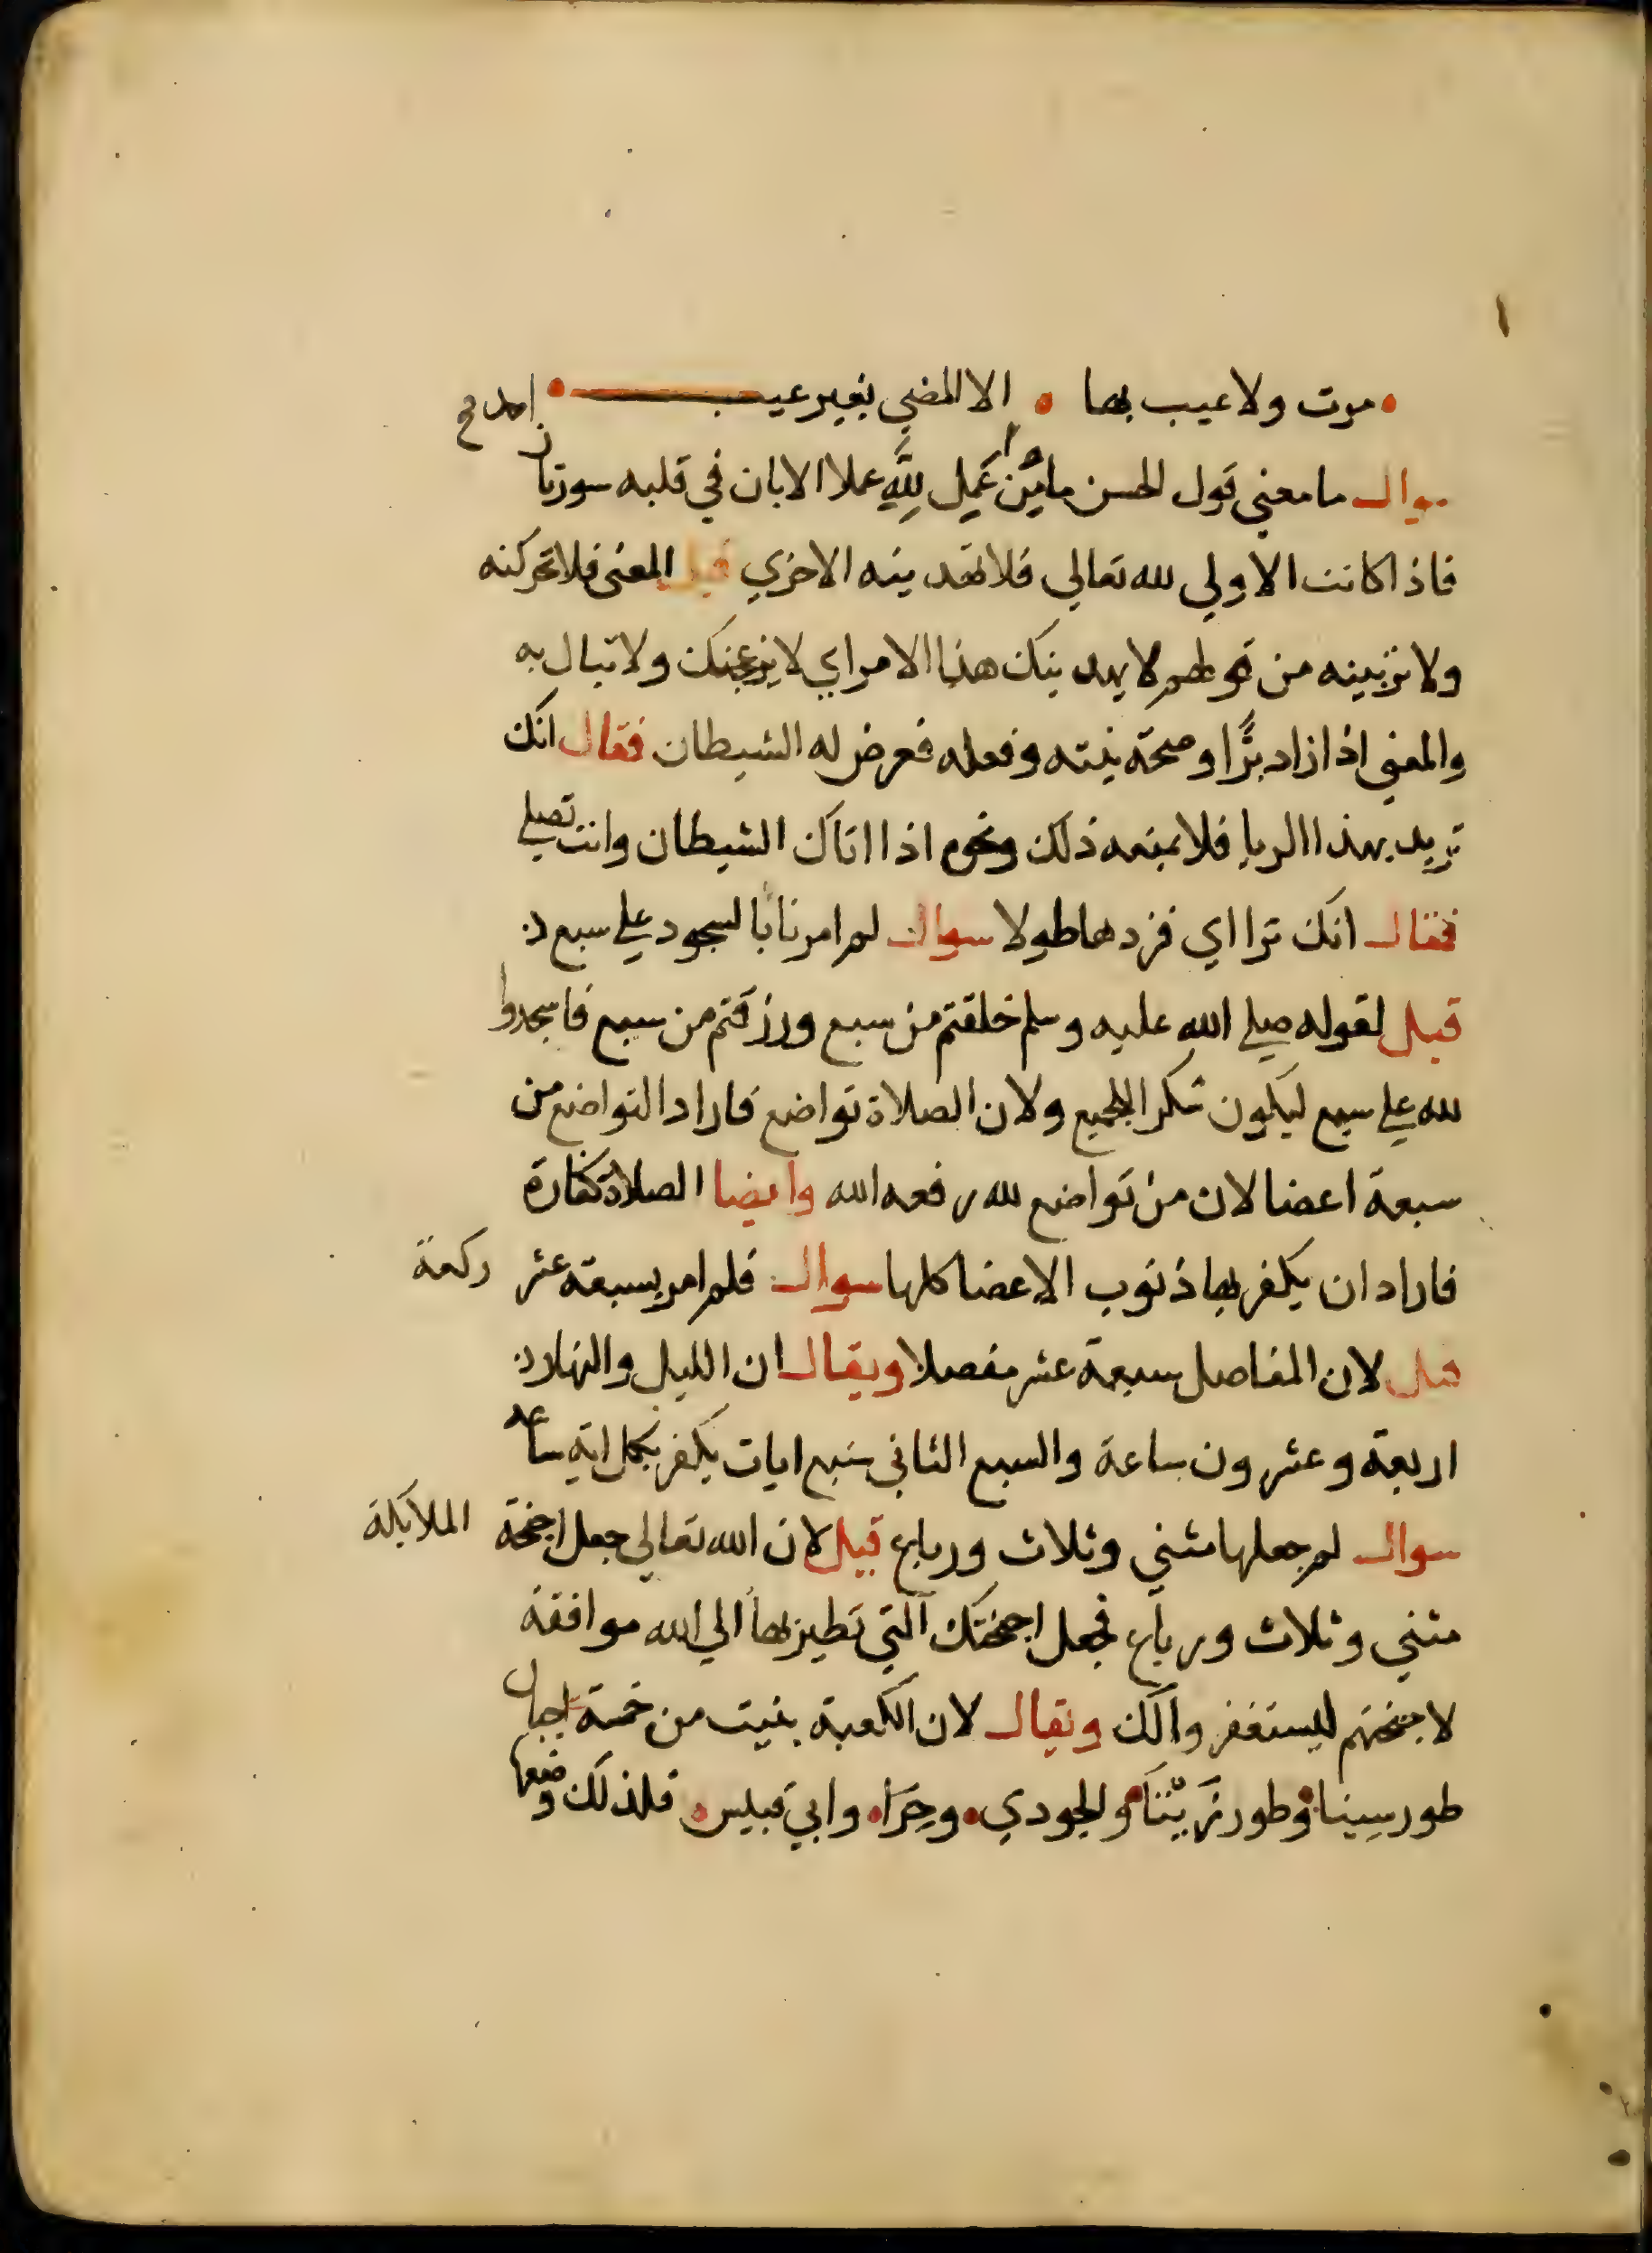 ١
موت ولا عيب بها • الا المضي بغير عيب •
سوال ما معني قول الحسن ما من عمل لله عملا الا بان في قلبه سورتان
فاذا كانت الاولي لله تعالي فلا تهدينه الاخري قيل المعنى فلا تحركنه
ولا تزيينه من قولهم لا يهدينك هذا الامر اي لا يزعجنك ولا تبال به
والمعني اذا زاد برًّا وصحة نيته وفعله فعرض له الشيطان فقال انك
تريد بهذا الريا فلا يمنعه ذلك ونحوه اذا اتاك الشيطان وانت تصلي
فقال انك تراءي فزدها طولا سوال لم امرنا بالسجود علي سبع
قيل لقوله صلي الله عليه وسلم خلقتم من سبع ورزقتم من سبع فاسجدوا
لله علي سبع ليكون شكرا للجميع ولان الصلاة تواضع فاراد التواضع من
سبعة اعضا لان من تواضع لله رفعه الله وايضا الصلاة كفارة
فاراد ان يكفر بها ذنوب الاعضا كلها سوال فلم امر بسبعة عشر ركعة
قيل لان المفاصل سبعة عشر مفصلا ويقال ان الليل والنهار
اربعة وعشرون ساعة والسبع الثاني سبع ايات يكفر بكل اية ساعة
سوال لم جعلها مثني وثلاث ورباع قيل لان الله تعالي جعل اجنحة الملايكة
مثني وثلاث ورباع فجعل اجنحتك التي تطير بها الي الله موافقة
لاجنحتهم ليستغفروا لك ويقال لان الكعبة بنيت من خمسة اجبال
طور سينا وطور زيتنا والجودي • وحرا • وابي قبيس • فلذلك وضعها